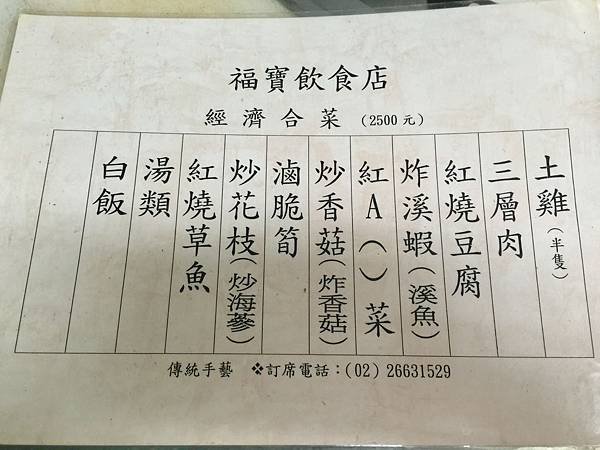 福寶飲食店
經濟合菜（2500元）
土雞（半隻）
三層肉
紅燒豆腐
炸溪蝦（溪魚）
紅A（）菜
炒香菇（炸香菇）
滷脆筍
炒花枝（炒海蔘）
紅燒草魚
湯類
白飯
傳統手藝 ❖訂席電話：(02) 26631529